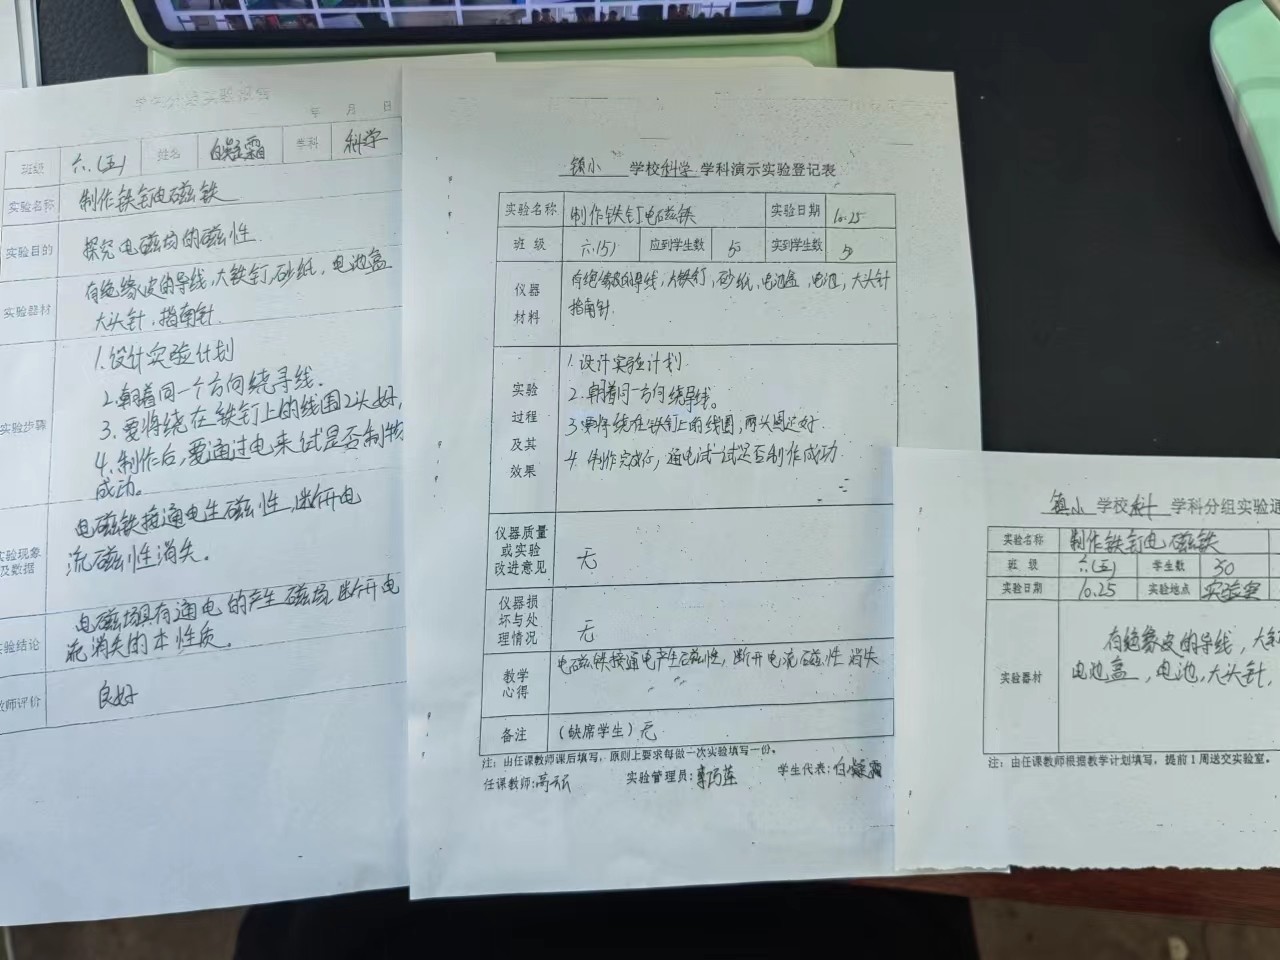 学生分组实验报告
年 月 日
班级 六.(五) 姓名 白凝霜 学科 科学
实验名称 制作铁钉电磁铁
实验目的 探究电磁场的磁性
实验器材 有绝缘皮的导线,大铁钉,砂纸,电池盒
大头针,指南针
实验步骤 1.设计实验计划
2.朝着同一个方向绕导线.
3.要将绕在铁钉上的线圈2头好,
4.制作后,要通过电来试是否制物
成功。
实验现象及数据 电磁铁接通电生磁性,断开电
流磁性消失。
实验结论 电磁场具有通电的产生磁场断开电
流消失的本性质。
教师评价 良好
镇小 学校科学 学科演示实验登记表
实验名称 制作铁钉电磁铁 实验日期 10.25
班 级 六.(5) 应到学生数 50 实到学生数 50
仪器材料 有绝缘皮的导线,大铁钉,砂纸,电池盒,电池,大头针
指南针
实验过程及其效果 1.设计实验计划.
2.朝着同一方向绕导线。
3.要将绕在铁钉上的线圈,两头固定好.
4.制作完成后,通电试一试是否制作成功
仪器质量或实验改进意见 无
仪器损坏与处理情况 无
教学心得 电磁铁接通电产生磁性,断开电流磁性消失
备注 (缺席学生)无
注:由任课教师课后填写,原则上要求每做一次实验填写一份。
任课教师: 实验管理员: 学生代表:白凝霜
镇小 学校科 学科分组实验通
实验名称 制作铁钉电磁铁
班 级 六.(五) 学生数 50
实验日期 10.25 实验地点 实验室
实验器材 有绝缘皮的导线,大铁
电池盒,电池,大头针,
注:由任课教师根据教学计划填写,提前1周送交实验室。